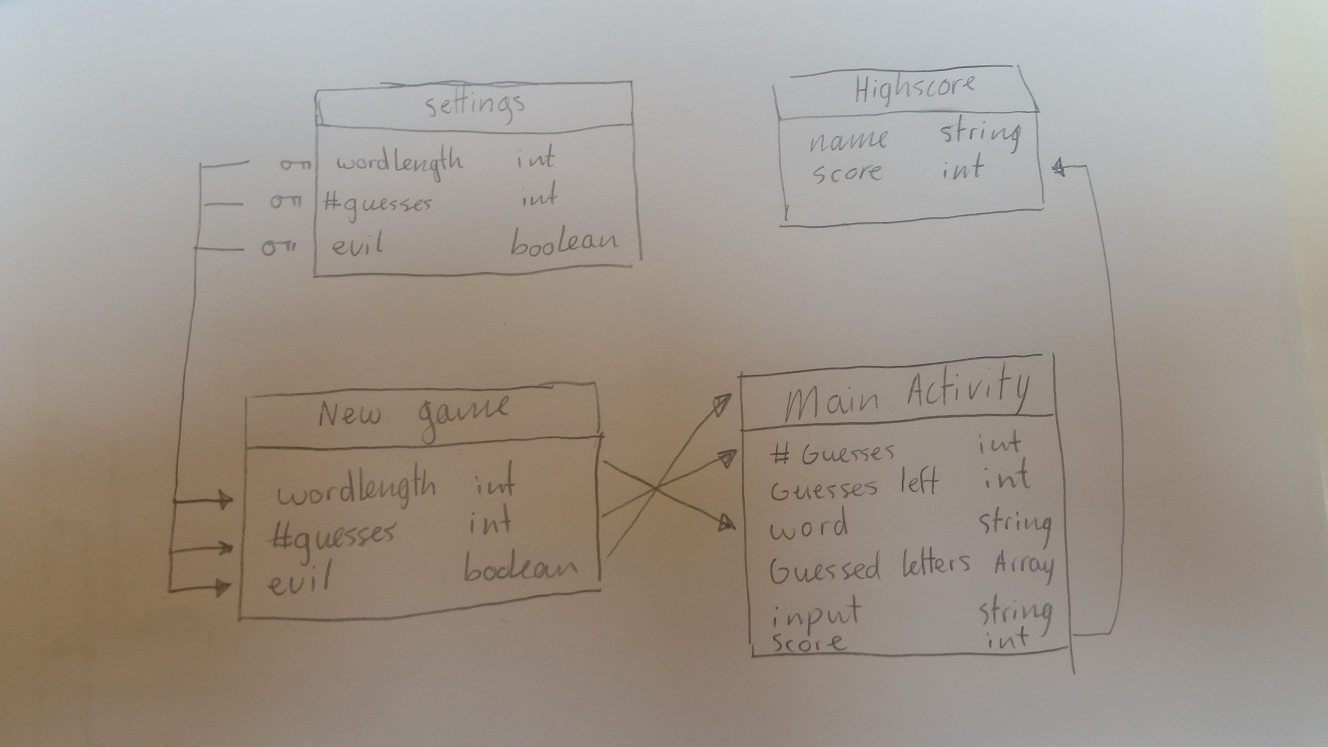 settings
wordlength int
#guesses int
evil boolean
Highscore
name string
score int
New game
wordlength int
#guesses int
evil boolean
Main Activity
# Guesses int
Guesses left int
word string
Guessed letters Array
input string
score int